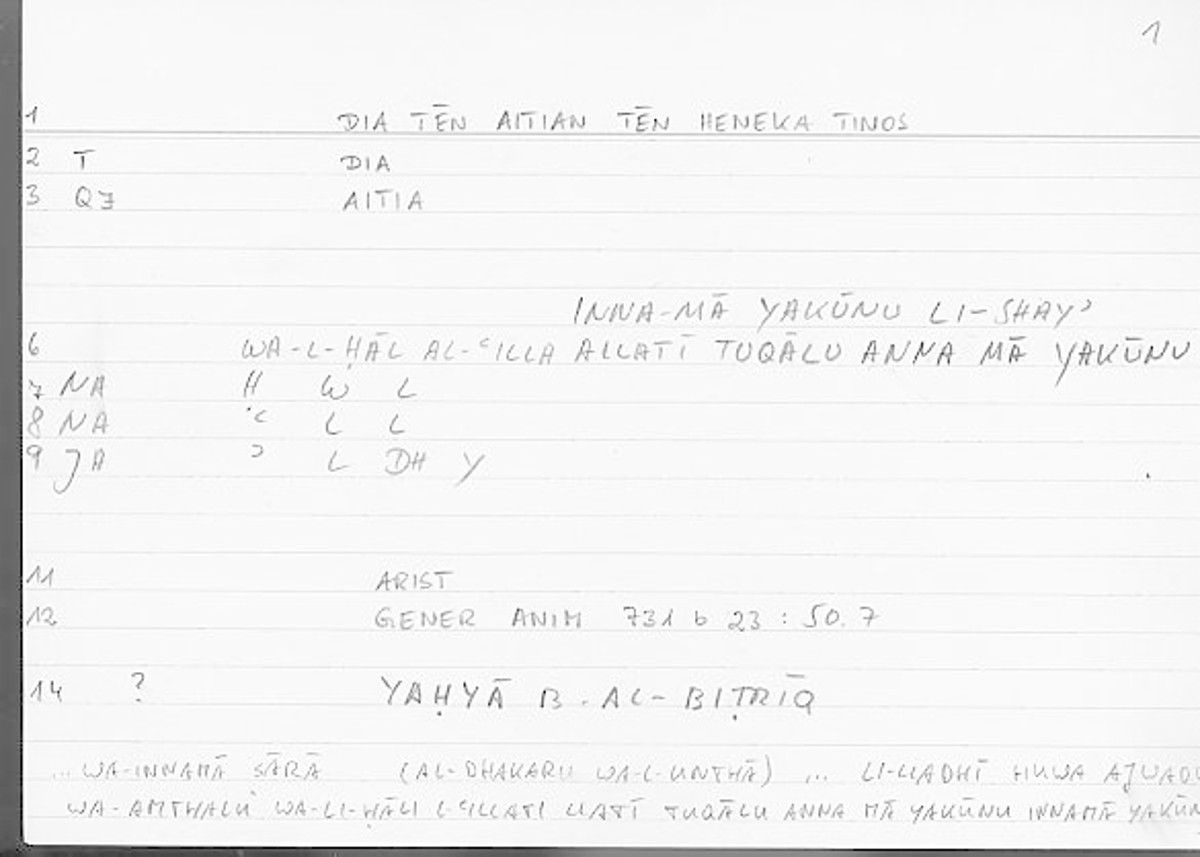 1
1 DIA TĒN AITIAN TĒN HENEKA TINOS
2 T DIA
3 QZ AITIA
INNA-MĀ YAKŪNU LI-SHAYʾ
6 WA-L-ḤĀL AL-ʿILLA ALLATĪ TUQĀLU ANNA MĀ YAKŪNU
7 NA H W L
8 NA ʿ L L
9 JA ʾ L DH Y
11 ARIST
12 GENER ANIM 731 b 23 : 50.7
14 ? YAḤYĀ B. AL-BIṬRĪQ
... WA-INNAMĀ SĀRĀ (AL-DHAKARU WA-L-UNTHĀ) ... LI-LLADHĪ HUWA
WA-AMTHALU WA-LI-ḤĀLI L-ʿILLATI LLATĪ TUQĀLU ANNA MĀ YAKŪNU INNAMĀ